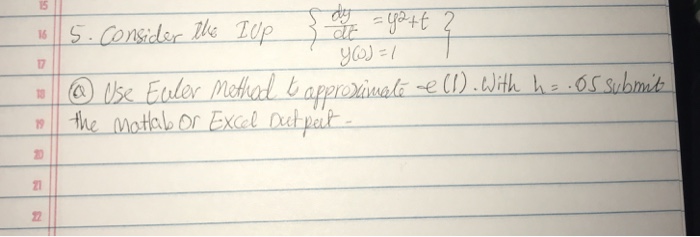 15
16 5. Consider the IVp { dy/dt = y2+t }
17 y(0) = 1
18 (a) Use Euler Method to approximate e(1). With h = .05 submit
19 the Matlab or Excel Output -
20
21
22